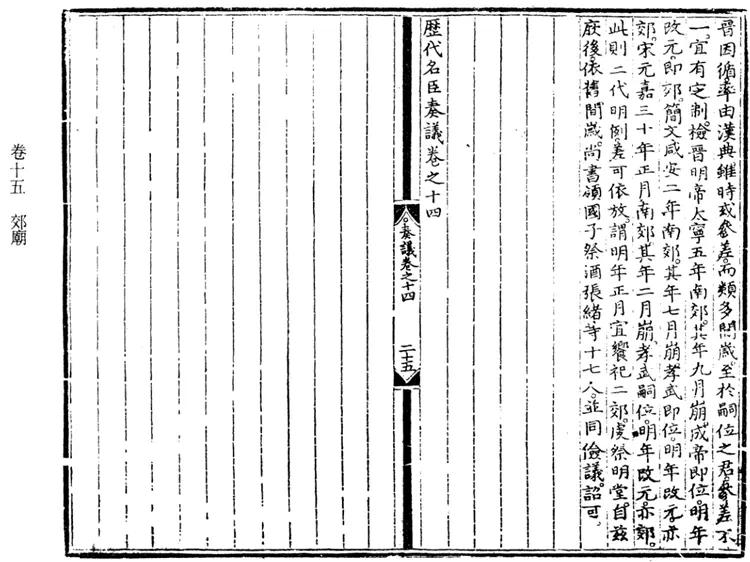 晋因循率由漢典雖時或參差而類多閒歲至於嗣位之君參差不
一宜有定制檢晋明帝太寧五年南郊其年九月崩成帝即位明年
改元即郊簡文咸安二年南郊其年七月崩孝武即位明年改元亦
郊宋元嘉三十年正月南郊其年二月崩孝武嗣位明年改元亦郊
此則二代明例差可依放謂明年正月宜饗祀二郊虔祭明堂自兹
厥後依舊間歲尚書領國子祭酒張緒等十七人並同儉議詔可
歷代名臣奏議卷之十四
奏議卷之十四
二十五
卷十五 郊廟